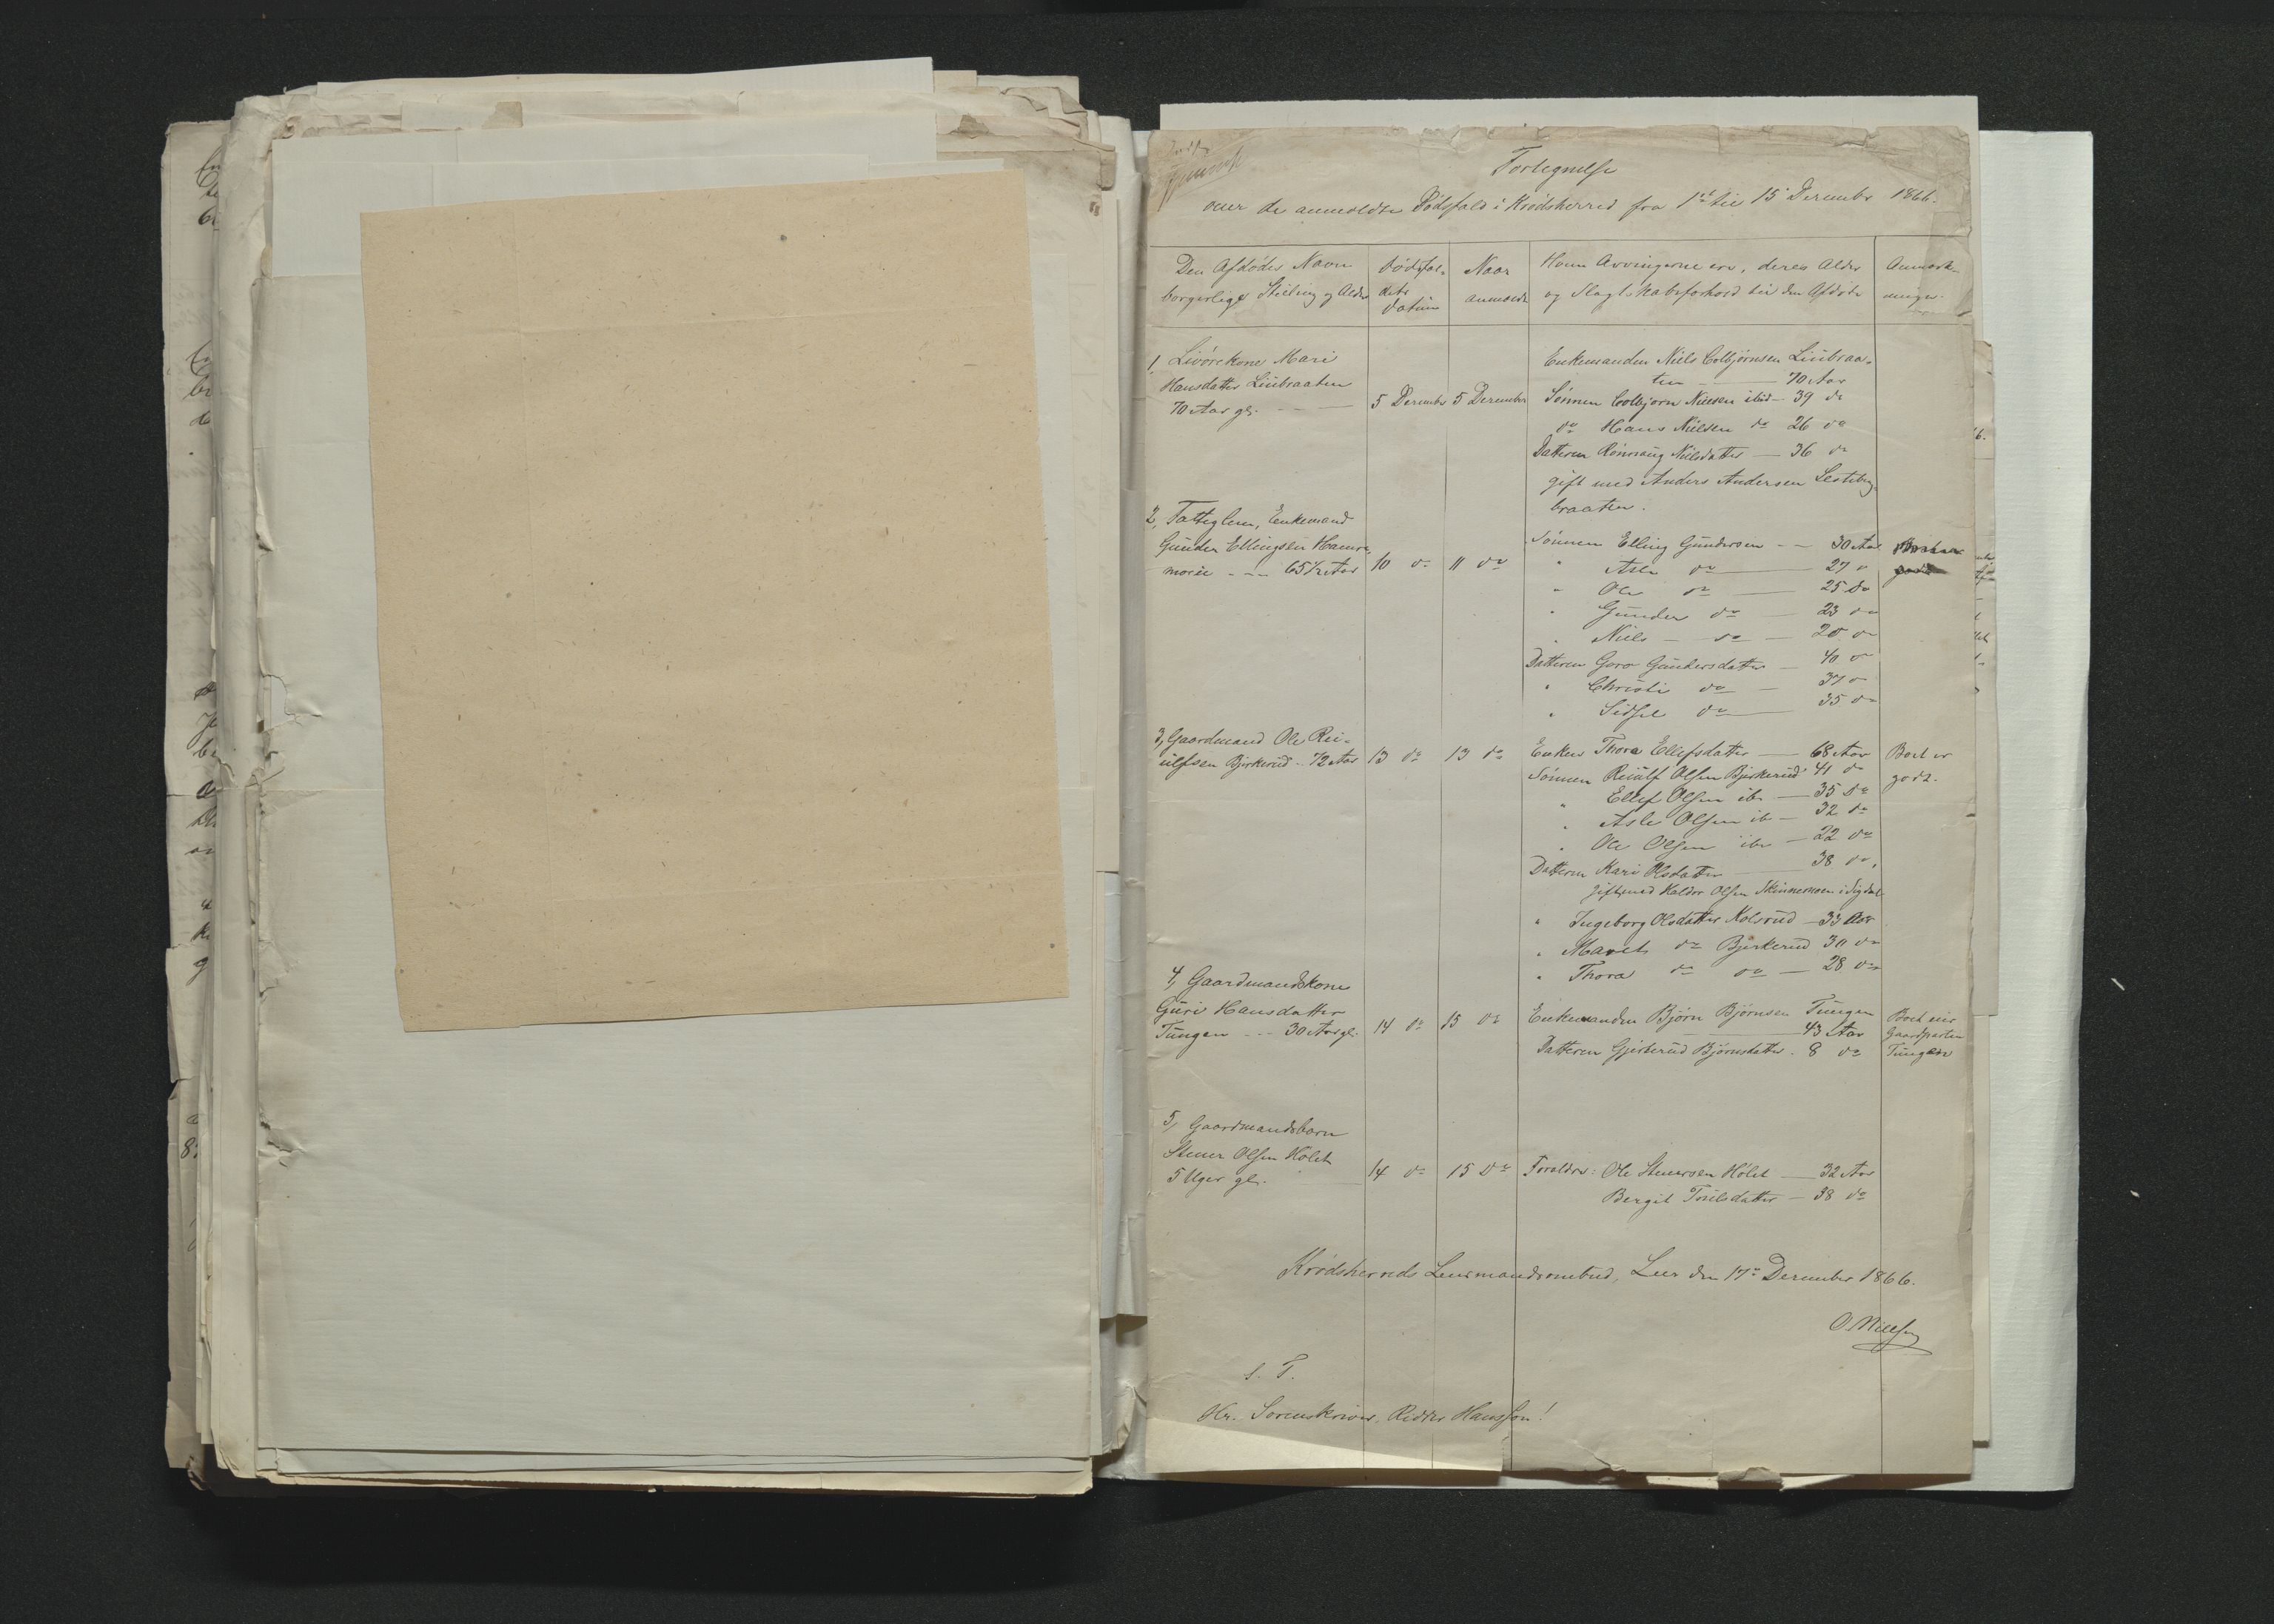 Fortegnelse
over de anmeldte Dødsfald i Krødsherred fra 1ste til 15de December 1866.
Den Afdødes Navn
borgerlige Stilling og Alder
Dødsfal-
dets
Datum
Naar
anmeldt
Hvem Arvingerne ere, deres Alder
og Slægtskabsforhold til den Afdøde
Anmærk-
ninger.
1, Livørekone Mari
Hansdatter Liubraaten
70 Aar gl.
5 December
5 December
Enkemanden Niels Colbjørnsen Liubraa-
ten — 70 Aar
Sønnen Colbjørn Nielsen ibid — 39 do
do Hans Nielsen do 26 do
Datteren Rønnaug Nielsdatter — 36 do
gift med Anders Andersen Lesteberg-
braaten.
2, Fattiglem, Enkemand
Gunder Ellingsen Hamre-
moen — 65 1/2 Aar
10 do
11 do
Sønnen Elling Gundersen — 30 Aar
" Asle do — 27 "
" Ole do — 25 do
" Gunder do — 23 do
" Niels — do — 20 do
Datteren Goro Gundersdatter — 40 do
" Christi do — 37 do
" Sidsel do — 35 do
3, Gaardmand Ole Rei-
ulfsen Bjerkerud .. 72 Aar
13 do
13 do
Enken Thora Ellefsdatter — 68 Aar
Sønnen Reiulf Olsen Bjerkerud 41 do
" Ellef Olsen ib. — 35 do
" Asle Olsen ib — 32 do
" Ole Olsen ib. — 22 do
Datteren Kari Olsdatter — 38 do,
gift med Haldor Olsen Skinnemoen i Sigdal
" Ingeborg Olsdatter Kolsrud — 33 Aar
" Maret do Bjerkerud 30 do
" Thora do do — 28 do
Boet er
godt.
4, Gaardmandskone
Guri Hansdatter
Tungen — 30 Aar gl.
14 do
15 do
Enkemanden Bjørn Bjørnsen Tungen
— 43 Aar
Datteren Gjertrud Bjørnsdatter . 8 do
Boet eier
Gaardparten
Tungen
5, Gaardmandsbarn
Stener Olsen Hólet
5 Uger gl.
14 do
15 do
Forældre: Ole Stenersen Hólet — 32 Aar
Bergit Truelsdatter — 38 do
Krødsherreds Lensmandsombud, Leer den 17de December 1866.
O. Nielsen
S. T.
Hr. Sorenskriver, Ridder Hansson!